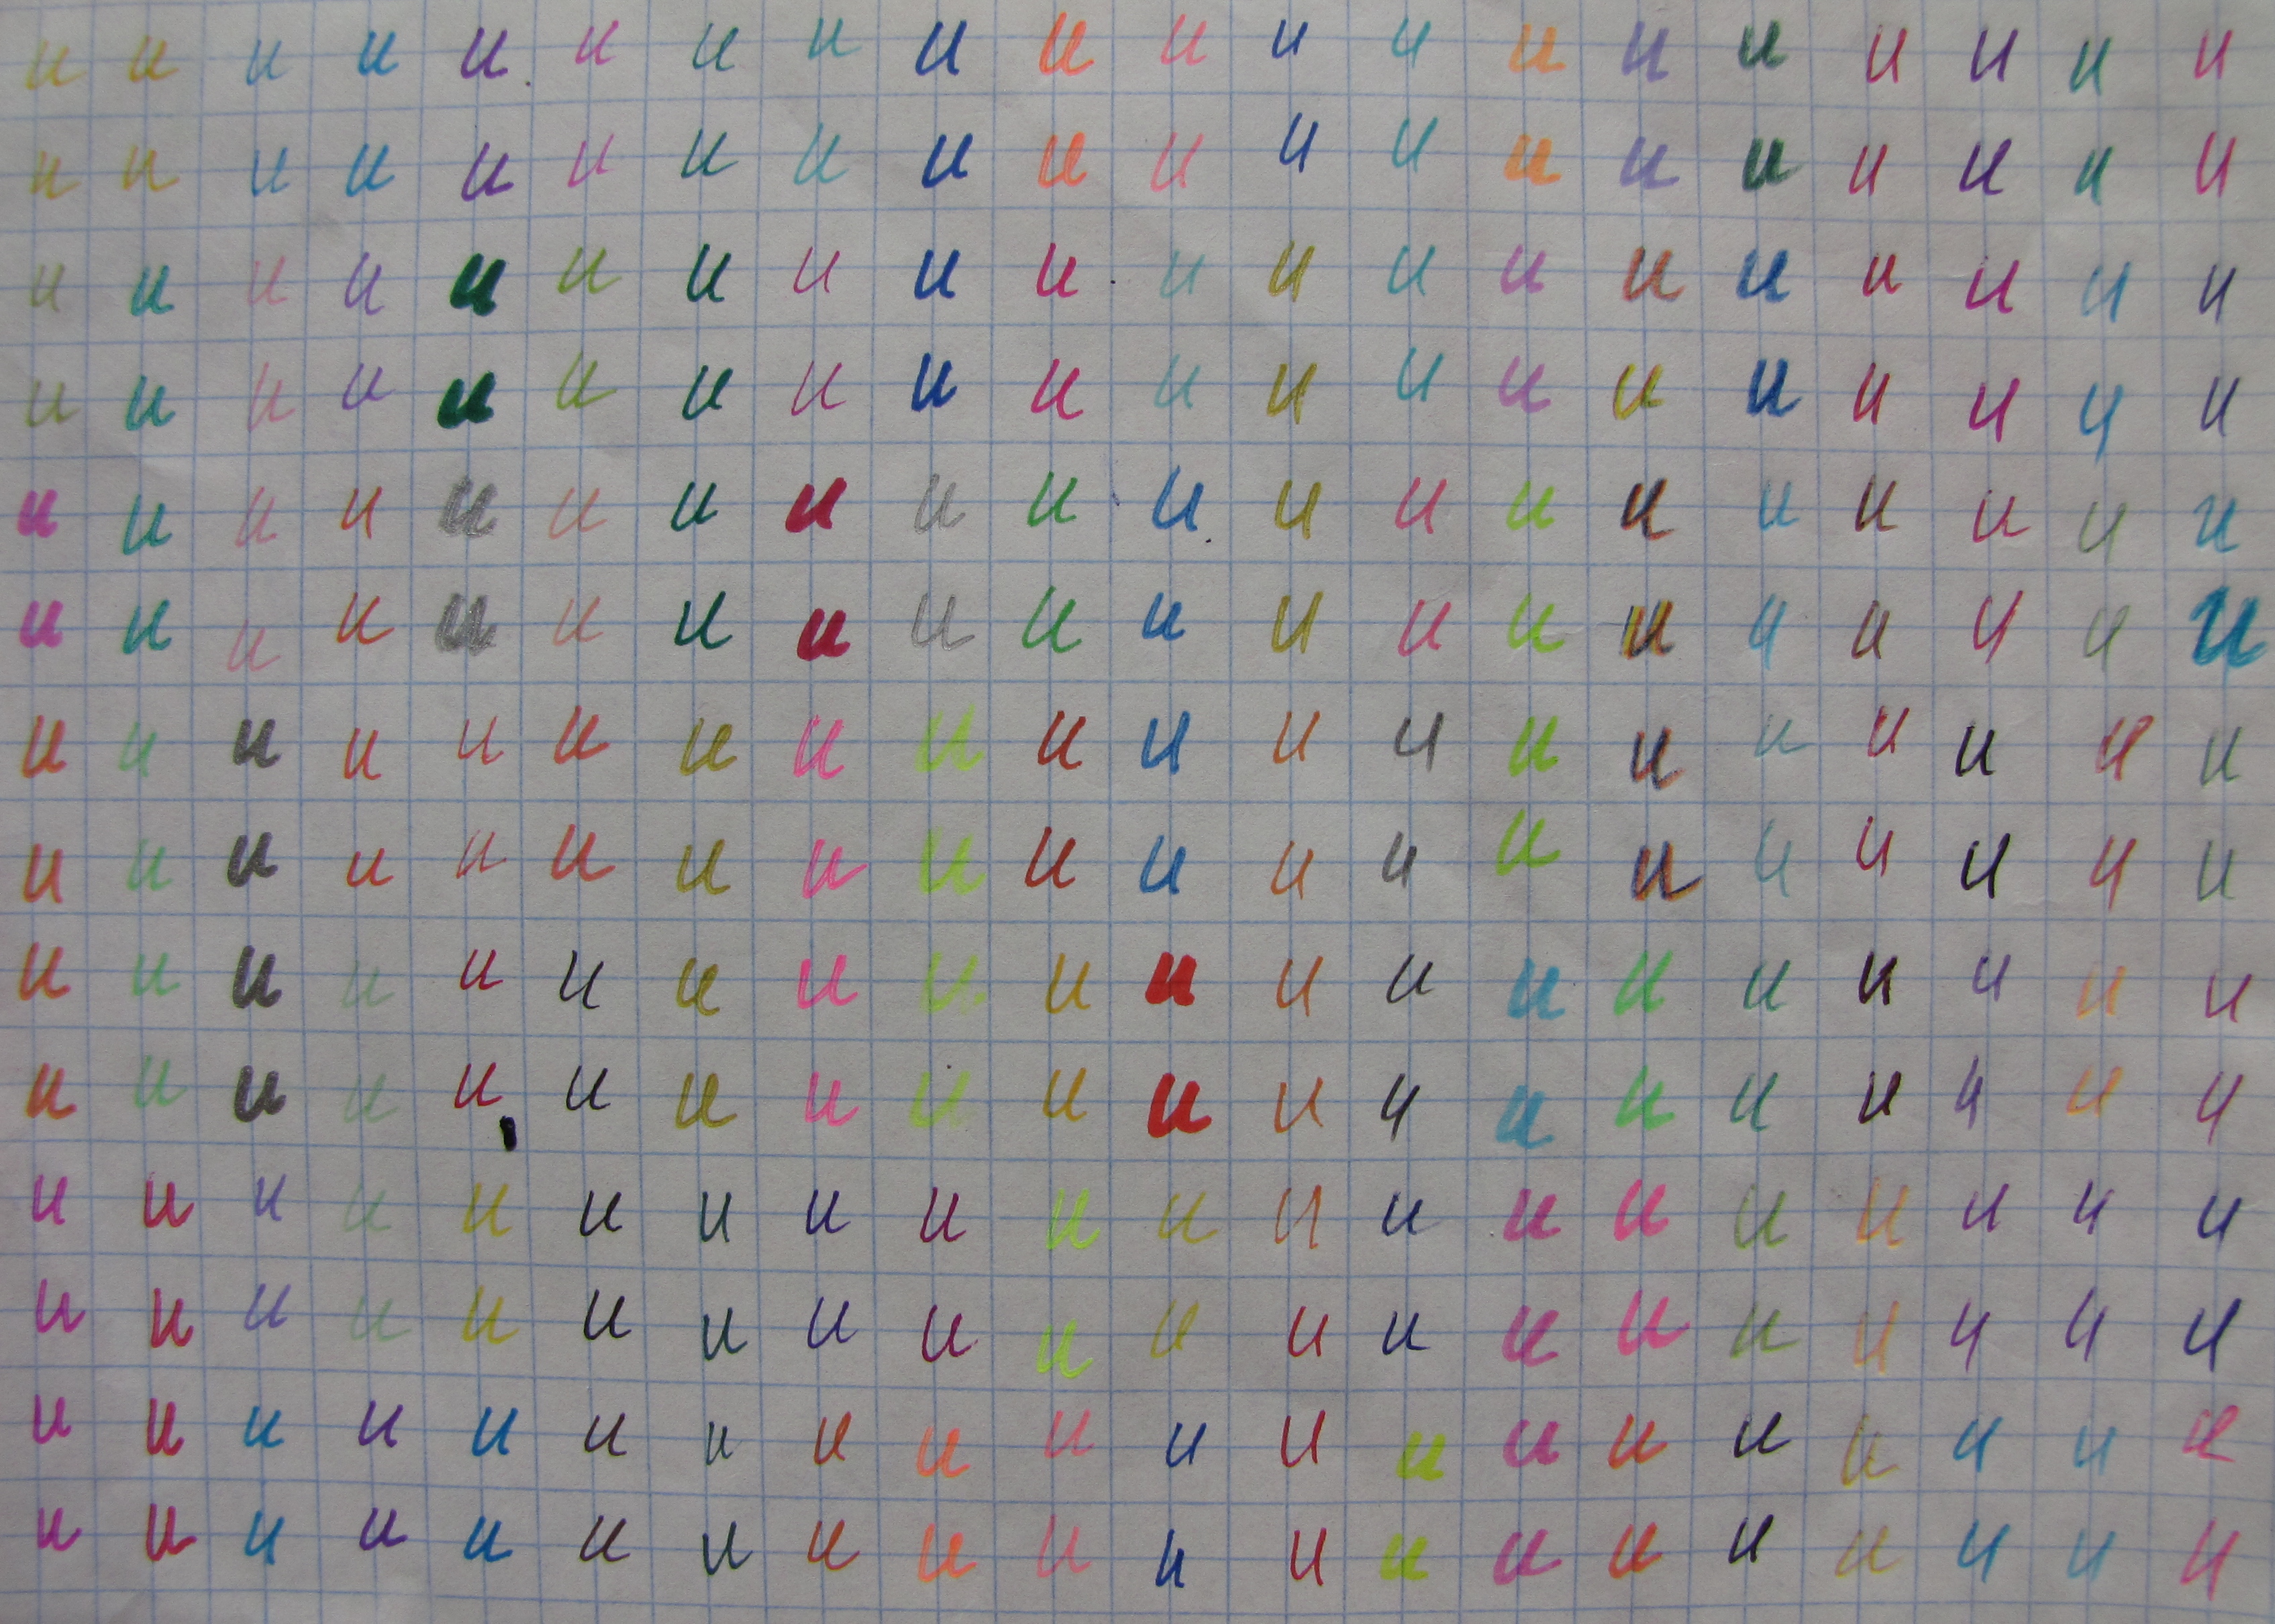 и и и и и и и и и и и и и и и и и и и и
и и и и и и и и и и и и и и и и и и и и
и и и и и и и и и и и и и и и и и и и и
и и и и и и и и и и и и и и и и и и и и
и и и и и и и и и и и и и и и и и и и и
и и и и и и и и и и и и и и и и и и и и
и и и и и и и и и и и и и и и и и и и и
и и и и и и и и и и и и и и и и и и и и
и и и и и и и и и и и и и и и и и и и и
и и и и и и и и и и и и и и и и и и и и
и и и и и и и и и и и и и и и и и и и и
и и и и и и и и и и и и и и и и и и и и
и и и и и и и и и и и и и и и и и и и и
и и и и и и и и и и и и и и и и и и и и